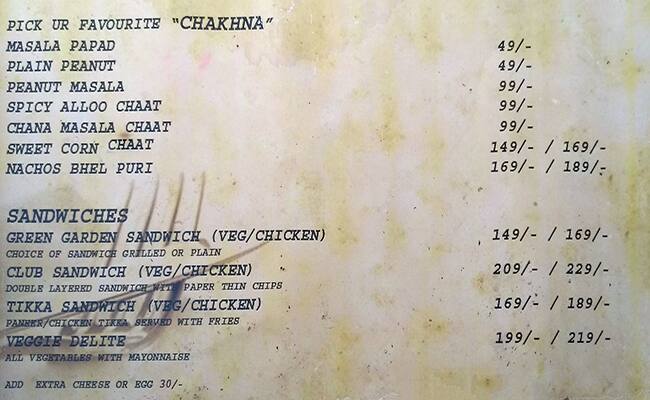 PICK UR FAVOURITE "CHAKHNA"
MASALA PAPAD 49/-
PLAIN PEANUT 49/-
PEANUT MASALA 99/-
SPICY ALLOO CHAAT 99/-
CHANA MASALA CHAAT 99/-
SWEET CORN CHAAT 149/- / 169/-
NACHOS BHEL PURI 169/- / 189/-
SANDWICHES
GREEN GARDEN SANDWICH (VEG/CHICKEN) 149/- / 169/-
CHOICE OF SANDWICH GRILLED OR PLAIN
CLUB SANDWICH (VEG/CHICKEN) 209/- / 229/-
DOUBLE LAYERED SANDWICH WITH PAPER THIN CHIPS
TIKKA SANDWICH (VEG/CHICKEN) 169/- / 189/-
PANEER/CHICKEN TIKKA SERVED WITH FRIES
VEGGIE DELITE 199/- / 219/-
ALL VEGETABLES WITH MAYONNAISE
ADD EXTRA CHEESE OR EGG 30/-